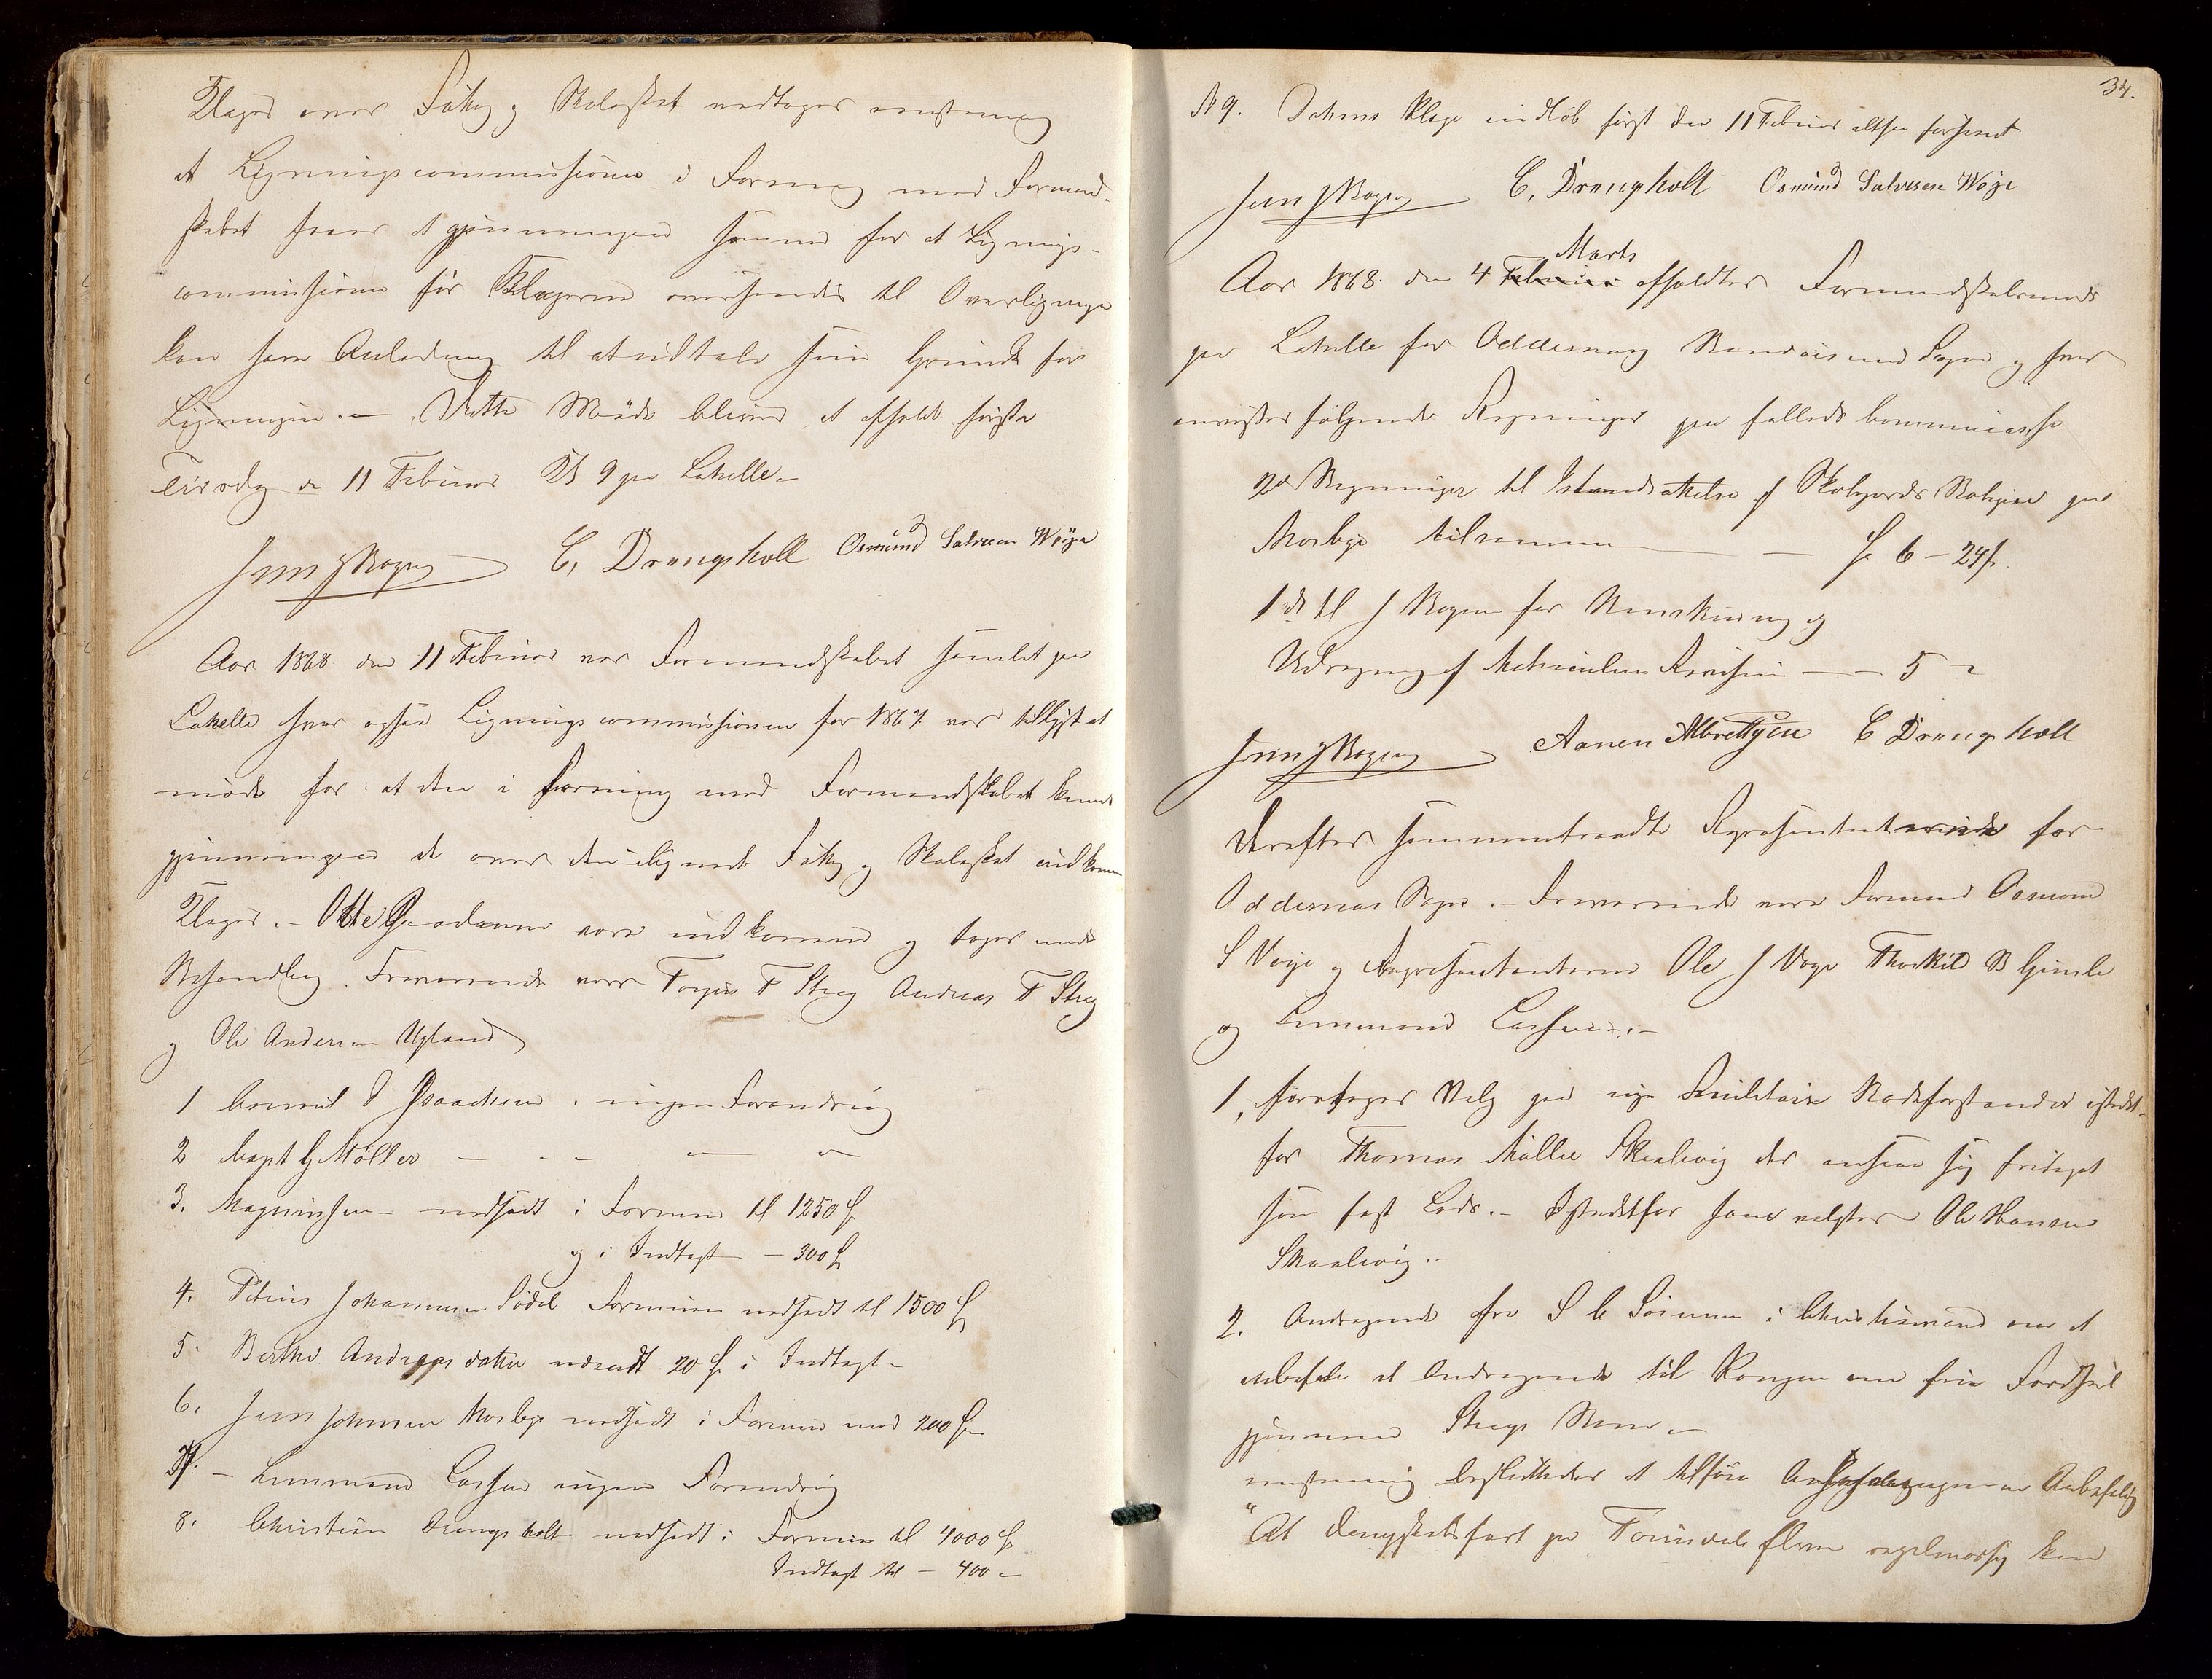 Klager over Fattig og Skoleskat vedtoges enstemmig
at Ligningscommissionen i Forening med Formand-
skabet faaer at gjennemgaa samme for at Lignings-
commissionen før Klagerne oversendes til Overligningen
kan have Anledning til at udtale sine Grunde for
Ligningen. — Dette Møde bliver at afholde første
Tirsdag den 11 Februar Kl 9 paa Lahelle.
Jens J Bogen C, Drangsholt Osmund Salvesen Woije
Aar 1868 den 11 Februar var Formandskabet samlet paa
Lahelle hvor ogsaa Ligningscommissionen for 1867 var tillyst at
møde for at den i Forening med Formandskabet kunde
gjennemgaa de over den udlignede Fattig og Skoleskat indkomne
Klager. – Otte vare indkomne og toges under
Behandling. Fraværende vare Torjus T Stray Andreas T Stray
og Ole Andersen Ugland
1 Consul D Isaachsen . ingen Forandring
2 Capt G Møller — - - — —
3. Magnussen – nedsadt i Formue til 1250 S
og i Indtægt — 300 S
4. Petrus Johannesen Sødal Formuen nedsadt til 1500 S
5. Berthe Andreasdatter nedsadt 20 S i Indtægt –
6. Jens Johnsen Mosbye nedsadt i Formue med 200 S
7. – Emmerond Larsen ingen Forandring
8. Christian Drangsholt nedsadt i Formue til 4000 S
Indtægt til – 400 –
34.
N 9. Klage indløb først den 11 Februar altsaa forsent
Jens J Bogen C, Drangsholt Osmund Salvesen Woije
Marts
Aar 1868. den 4 Februar afholdtes Formandskabsmøde
paa Lahelle for Oddernes og Randøsund Sogne og hvor
anvistes følgende Regninger paa fælleds Communecasse
2de Regninger til Istandsættelse af Skolegaards Boliger paa
Mosbye tilsammen — S 6 – 24 s.
1 do til J Bogen for Renskrivning og
Udregning af Matriculens Revision — – 5 –
Jens J Bogen Aanen Albrettsen C Drangsholt
Derefter sammentraadte Repræsentanterne for
Oddernes Sogn. – Fraværende vare Formand Osmund
S Voije og Repræsentanterne Ole J Voje Thorkild B Gimle
og Emmerond Larsen. –
1, foretoges Valg paa nye Militair Rodeforstander istedet-
for Thomas Møller Skaalevig der ansees sig fritaget
som fast Lods. – Istedetfor ham valgtes Ole Hansen
Skaalevig. –
2. Andragende fra S C i Christiansand om at
anbefale et Andragende til Kongen om frie Fordsel
gjennem Strays
enstemmig besluttedes at tilføie Andragende Anbefaling
"At Dampskibsfart paa Torrisdalselven regelmæssig kan